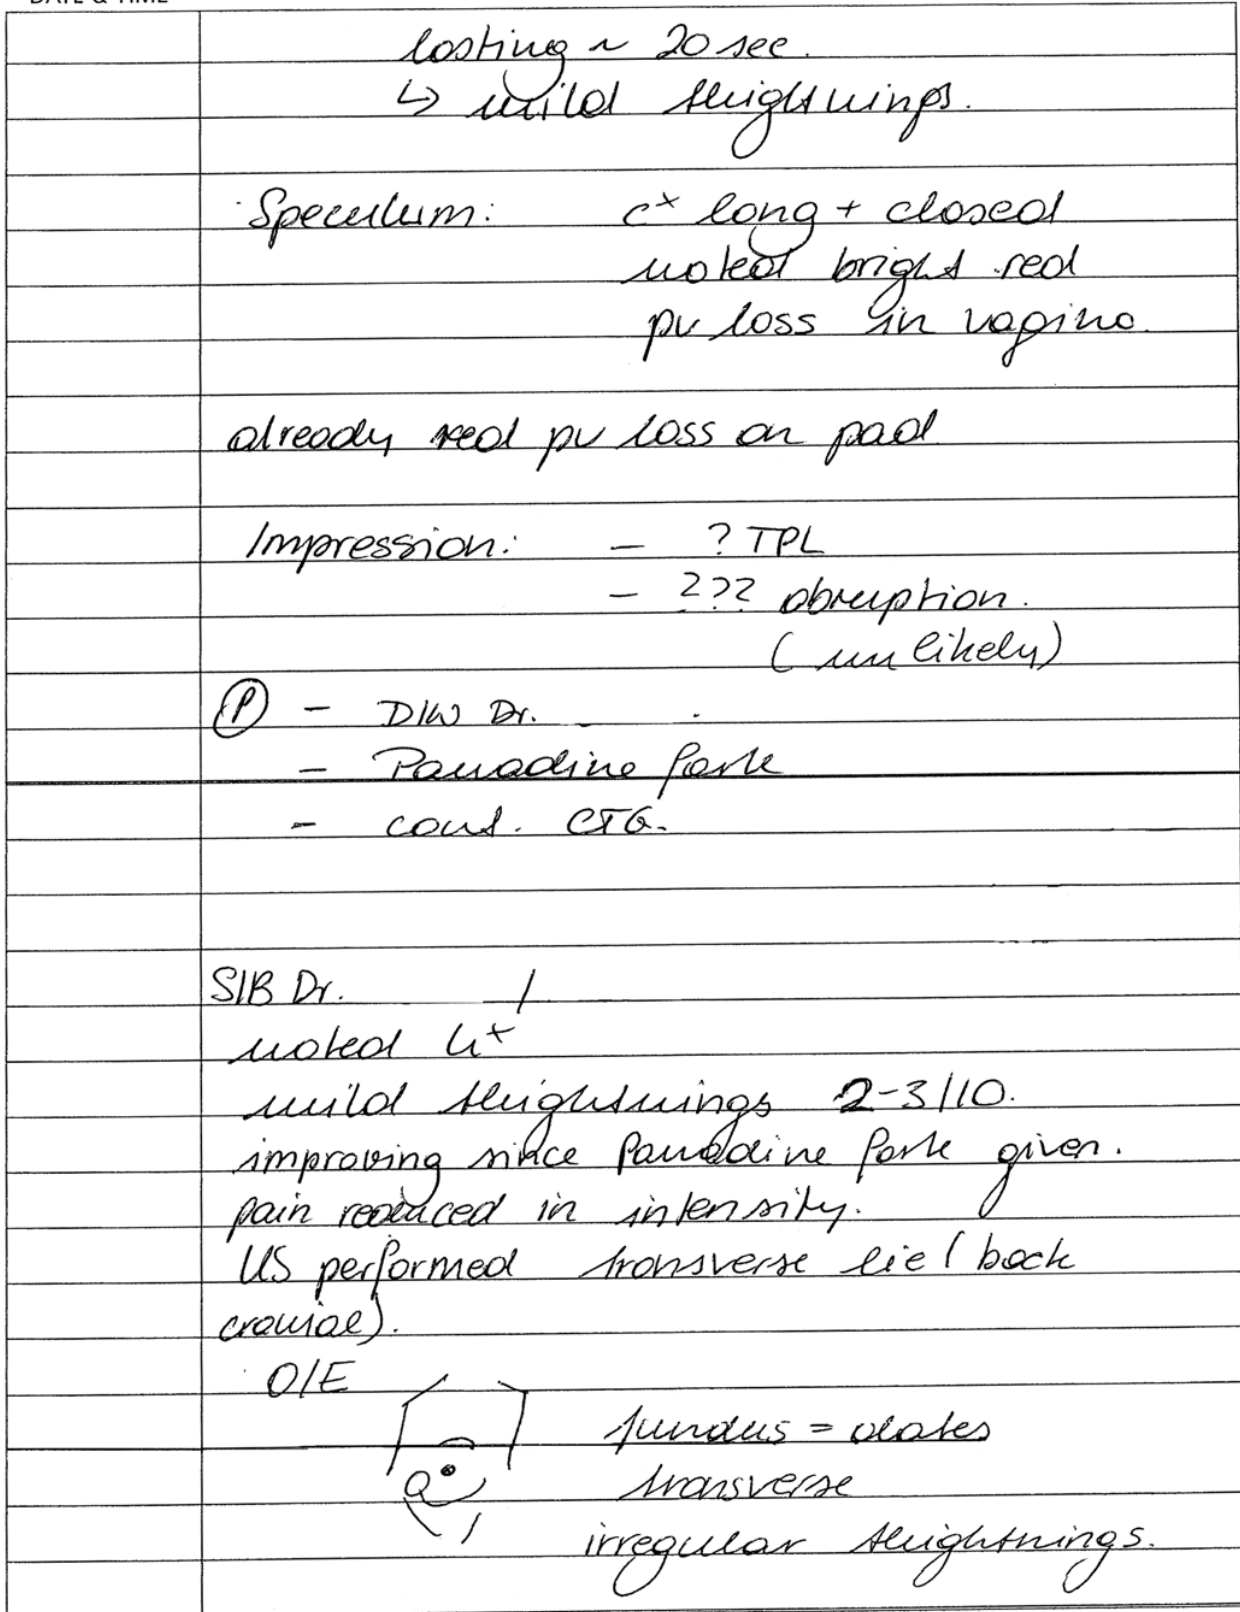 DATE & TIME
lasting ~ 20 sec.
↳ mild tightnings.
Speculum: cx long + closed
noted bright red
pv loss in vagina.
already red pv loss on pad
Impression: - ? TPL
- ??? abruption.
(unlikely)
Ⓟ - D/W Dr.
- Panadine forte
- cont. CTG.
S/B Dr.
noted Hx
mild tightnings 2-3/10.
improving since Panadine forte given.
pain reduced in intensity.
US performed transverse lie (back
cranial).
O/E
fundus = dates
transverse
irregular tightnings.